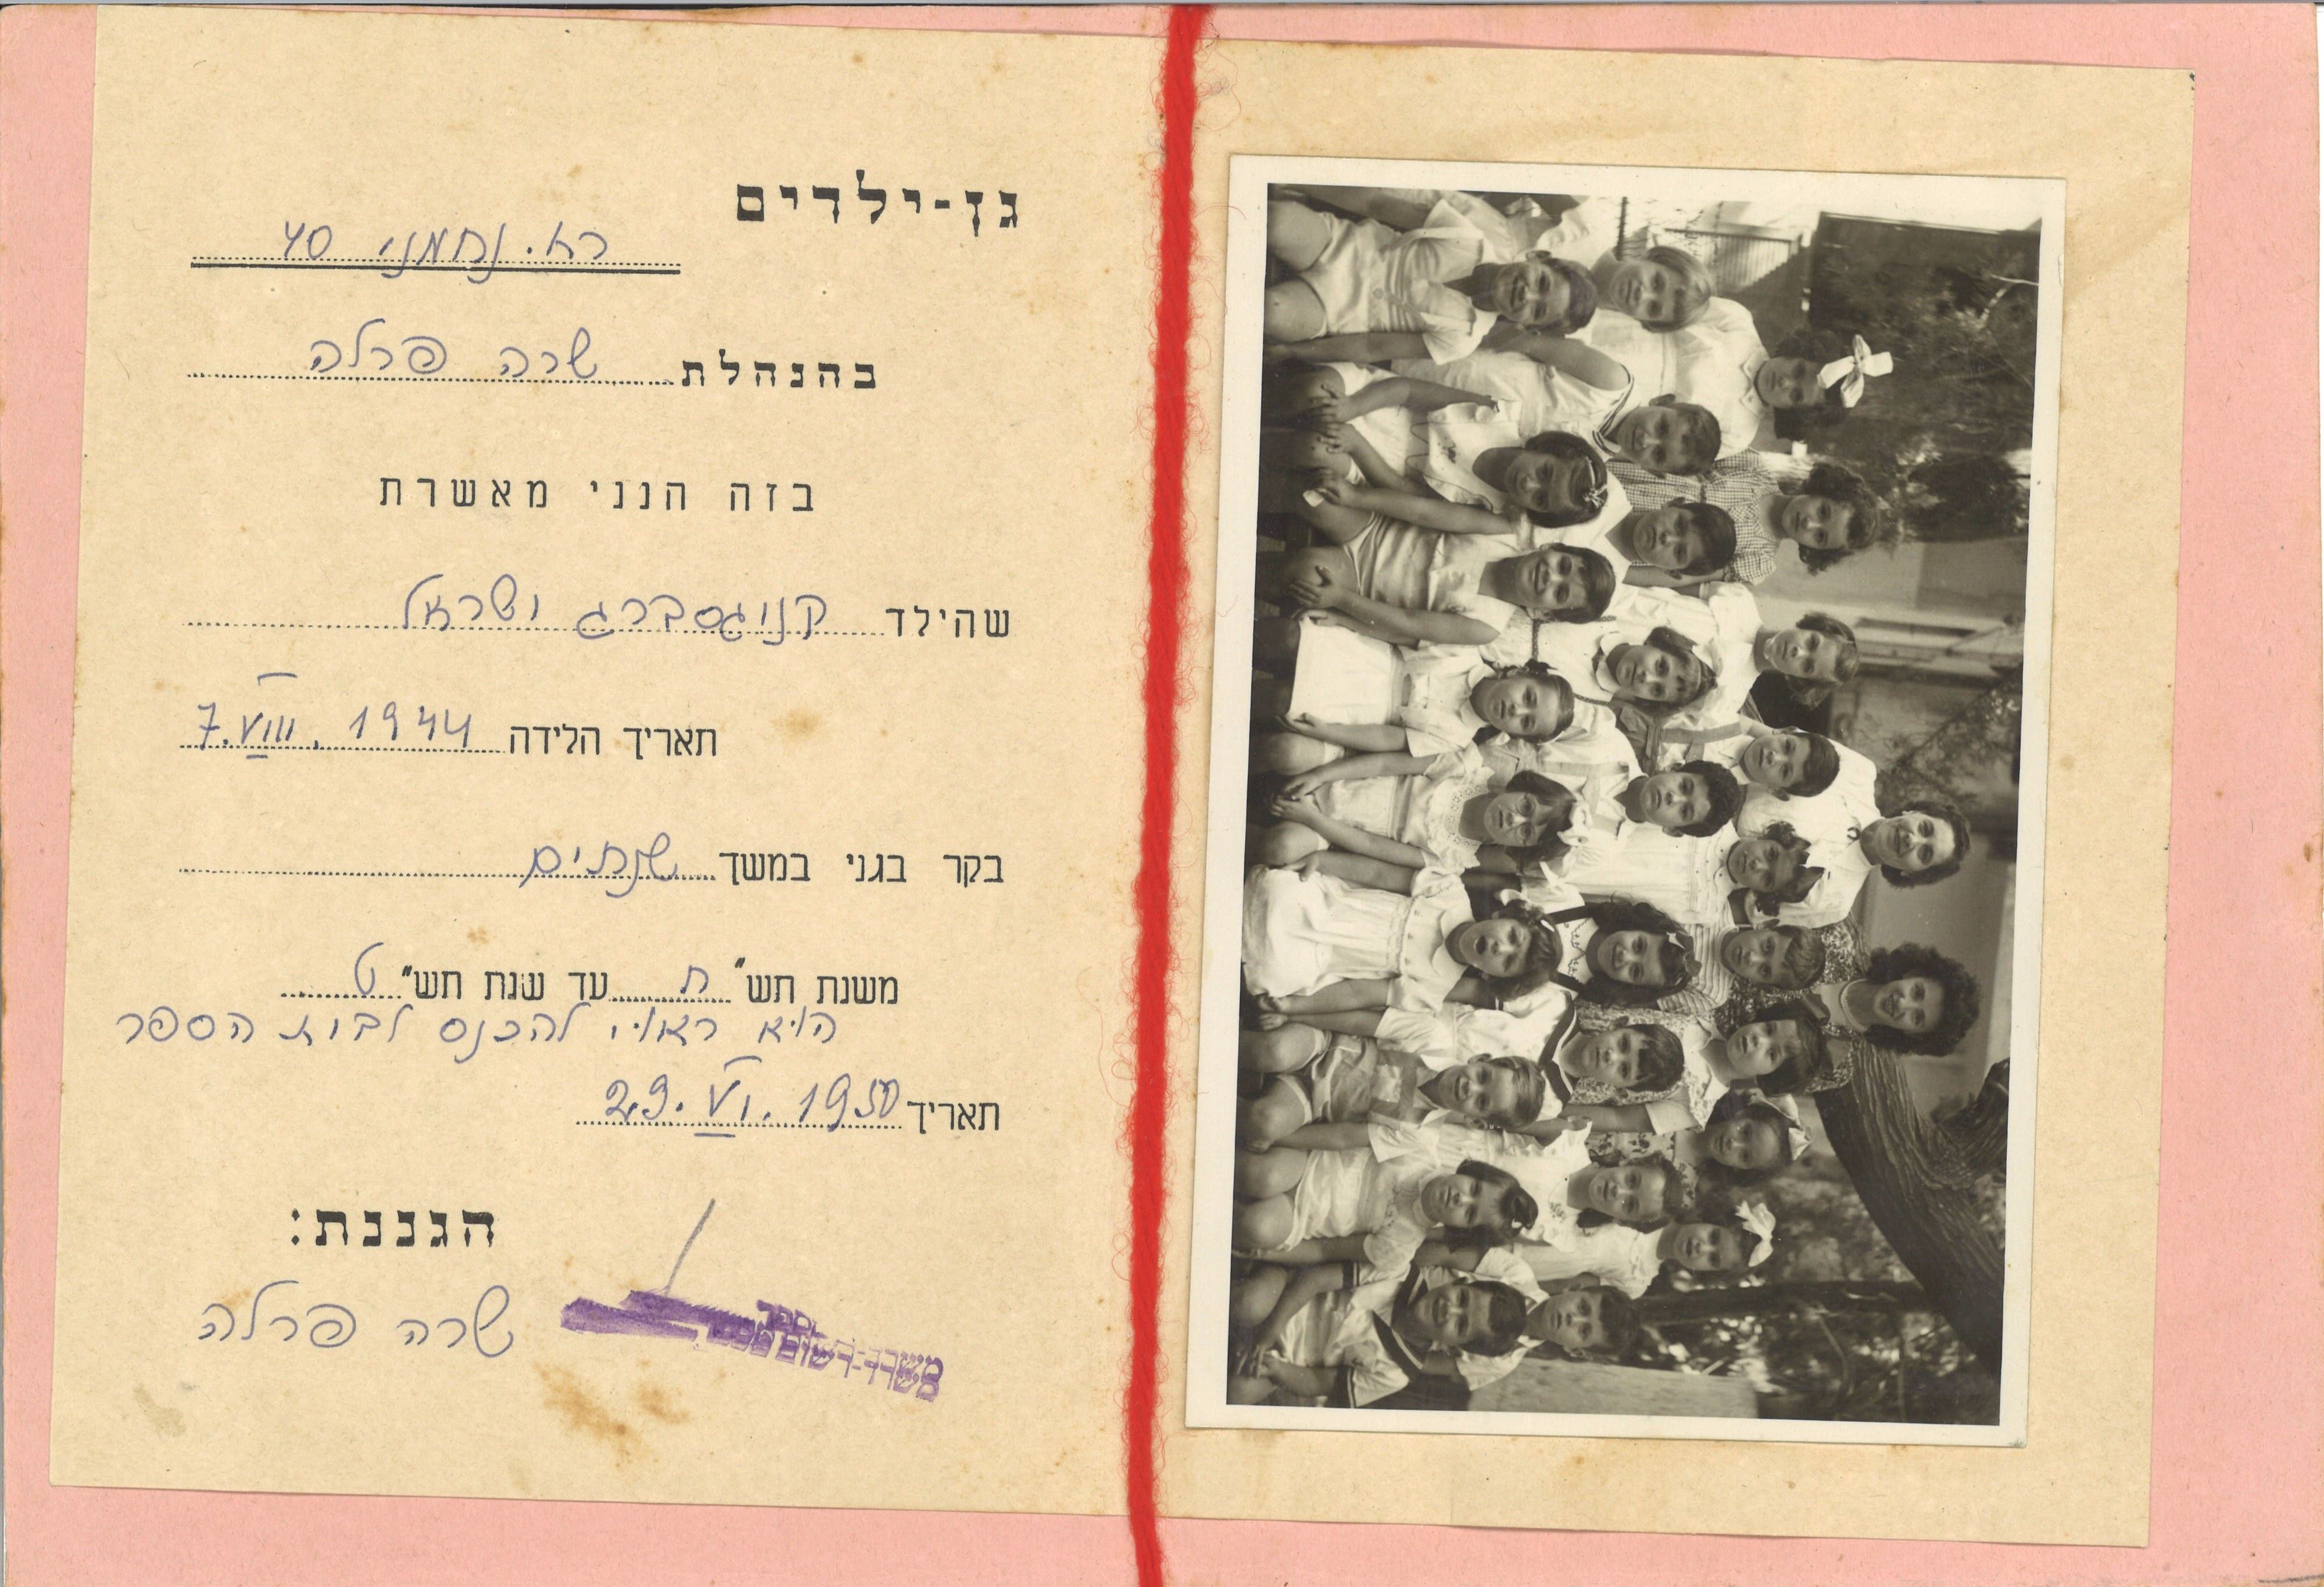 גן-ילדים
רח. נחמני 40
בהנהלת שרה פרלה
בזה הנני מאשרת
שהילד קניגסברג ישראל
תאריך הלידה 7.VIII.1944
בקר בגני במשך שנתיים
משנת תש"ח עד שנת תש"ט
הוא ראוי להכנס לבית הספר
תאריך 29.VI.1950
הגננת:
שרה פרלה
משרד-רשום
משרד